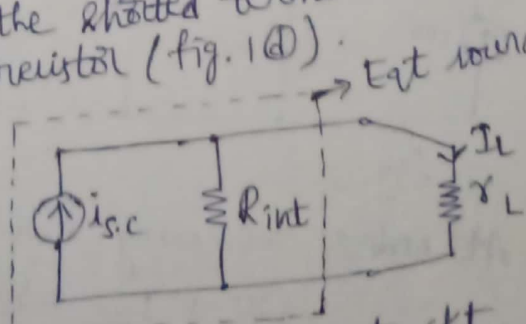 the shorted
resistor (fig. 1(d)).
Eqt
I_L
i_s.c
R_int
r_L